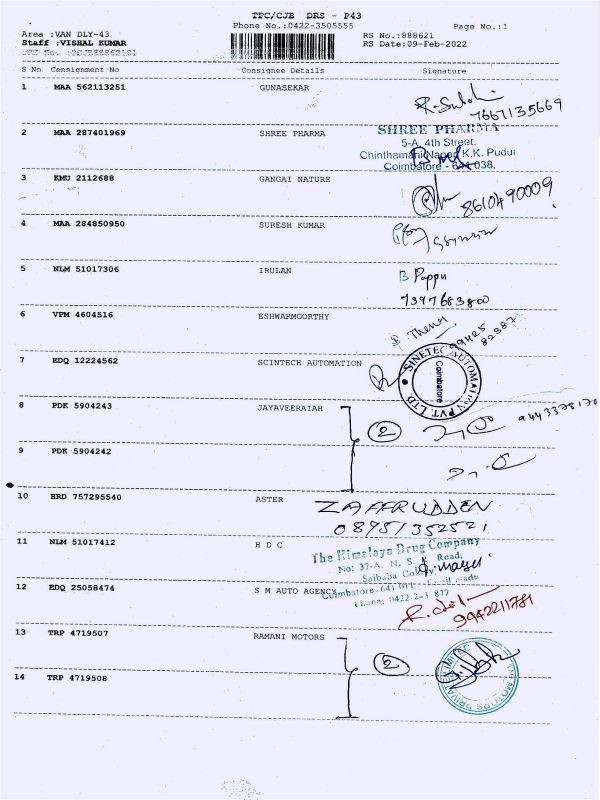 TPC/CJB DRS - P43
Phone No.:0422-3505555
Page No.:1
Area :VAN DLY-43
RS No.:888621
Staff :VISHAL KUMAR
RS Date:09-Feb-2022
S No Consignment No Consignee Details Signature
1 MAA 562113251 GUNASEKAR
7667135669
2 MAA 287401969 SHREE PHARMA
SHREE PHARMA
5-A, 4th Street,
Chinthamani Nagar, K.K. Pudur,
Coimbatore - 641 038.
3 KMU 2112688 GANGAI NATURE
8610490009
4 MAA 284850950 SURESH KUMAR
5 NLM 51017306 IRULAN
B Pappu
7397683800
6 VPM 4604516 ESHWARMOORTHY
99425
82387
7 EDQ 12224562 SCINTECH AUTOMATION
SINETEC AUTOMATION PVT. LTD
Coimbatore
8 PDK 5904243 JAYAVEERAIAH
2
9443378170
9 PDK 5904242
10 HRD 757295540 ASTER
ZAFFRUDDEN
11 NLM 51017412 H D C
The Himalaya Drug Company
No: 37-A, N. S. R. Road,
Saibaba Colony
12 EDQ 25058474 S M AUTO AGENCY
9942211781
13 TRP 4719507 RAMANI MOTORS
2
14 TRP 4719508